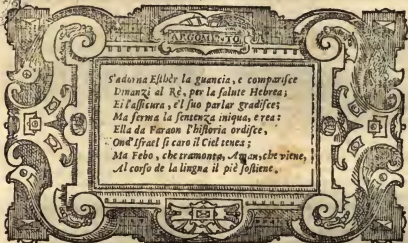 ARGOMENTO.
S'adorna Esthèr la guancia, e comparisce
Dinanzi al Rè, per la salute Hebrea;
Ei l'assicura, e'l suo parlar gradisce;
Ma ferma la sentenza iniqua, e rea:
Ella da Faraon l'historia ordisce,
Ond'Israel sì caro il Ciel tenea;
Ma Febo, che tramonta, Aman, che viene,
Al corso de la lingua il piè sostiene.